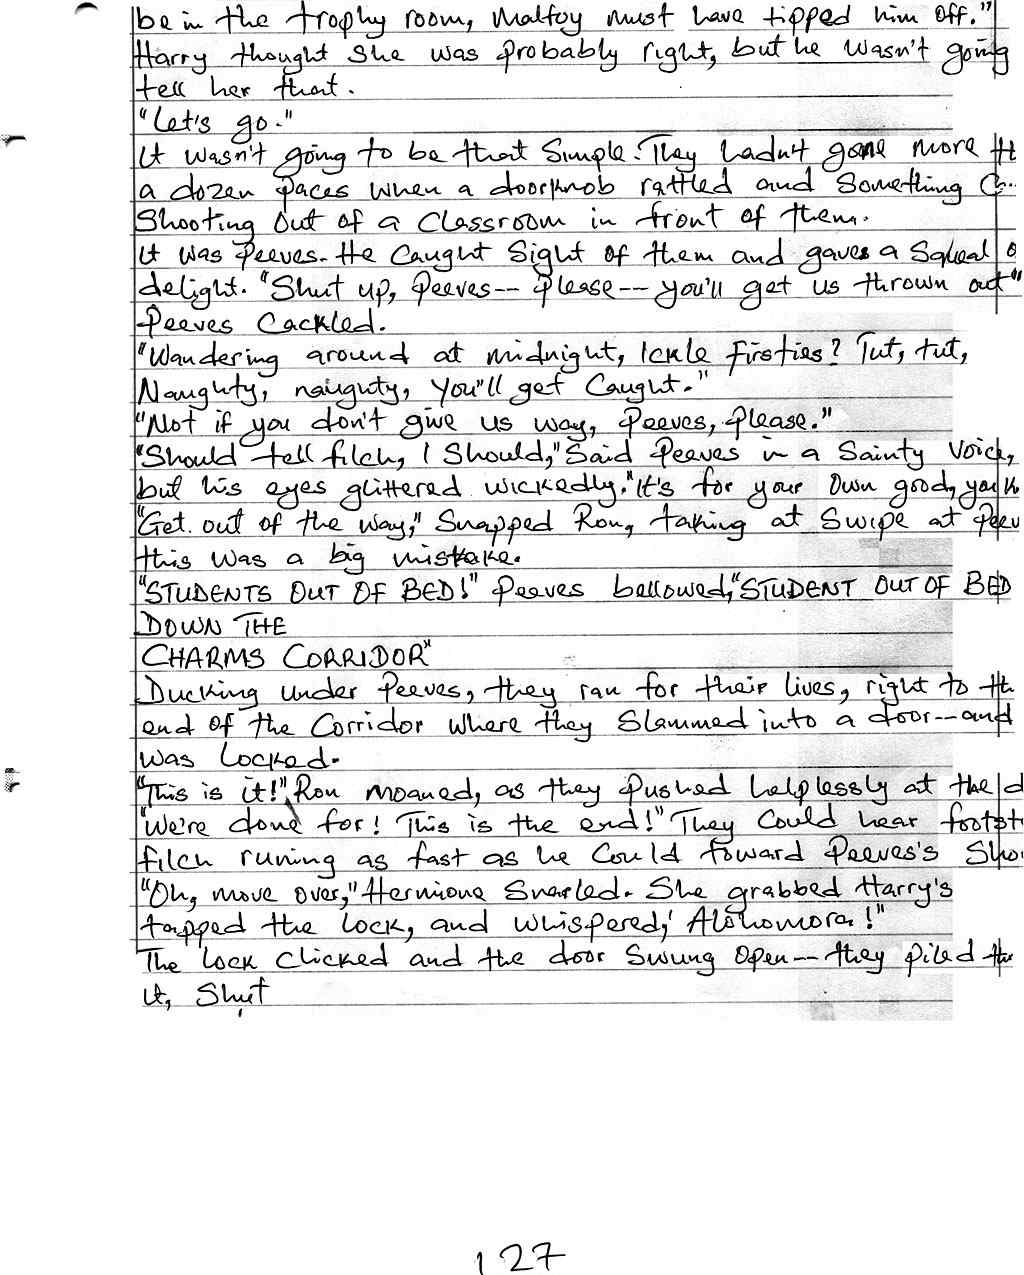 be in the trophy room, Malfoy must have tipped him off."
Harry thought she was probably right, but he wasn't going
tell her that.
"Let's go."
It wasn't going to be that simple. They hadn't gone more
a dozen paces when a doorknob rattled and something
Shooting out of a classroom in front of them.
It was Peeves. He caught sight of them and gaves a squeal o
delight. "Shut up, Peeves-- please-- you'll get us thrown out"
Peeves cackled.
"Wandering around at midnight, Ickle Firsties? Tut, tut,
Naughty, naughty, you'll get caught."
"Not if you don't give us way, Peeves, please."
"Should tell filch, I should," said Peeves in a sainty voice,
but his eyes glittered wickedly. "It's for your own good, you k
"Get out of the way," snapped Ron, taking at swipe at Peev
this was a big mistake.
"STUDENTS OUT OF BED!" Peeves bellowed, "STUDENT OUT OF BED
DOWN THE
CHARMS CORRIDOR"
Ducking under Peeves, they ran for their lives, right to th
end of the corridor where they slammed into a door--and
was locked.
"This is it!" Ron moaned, as they pushed helplessly at the d
"We're done for! This is the end!" They could hear footst
filch runing as fast as he could toward Peeves's sho
"Oh, move over," Hermione snarled. She grabbed Harry's
tapped the lock, and whispered, 'Alohomora!"
The lock clicked and the door swung open-- they piled
it, shut
127